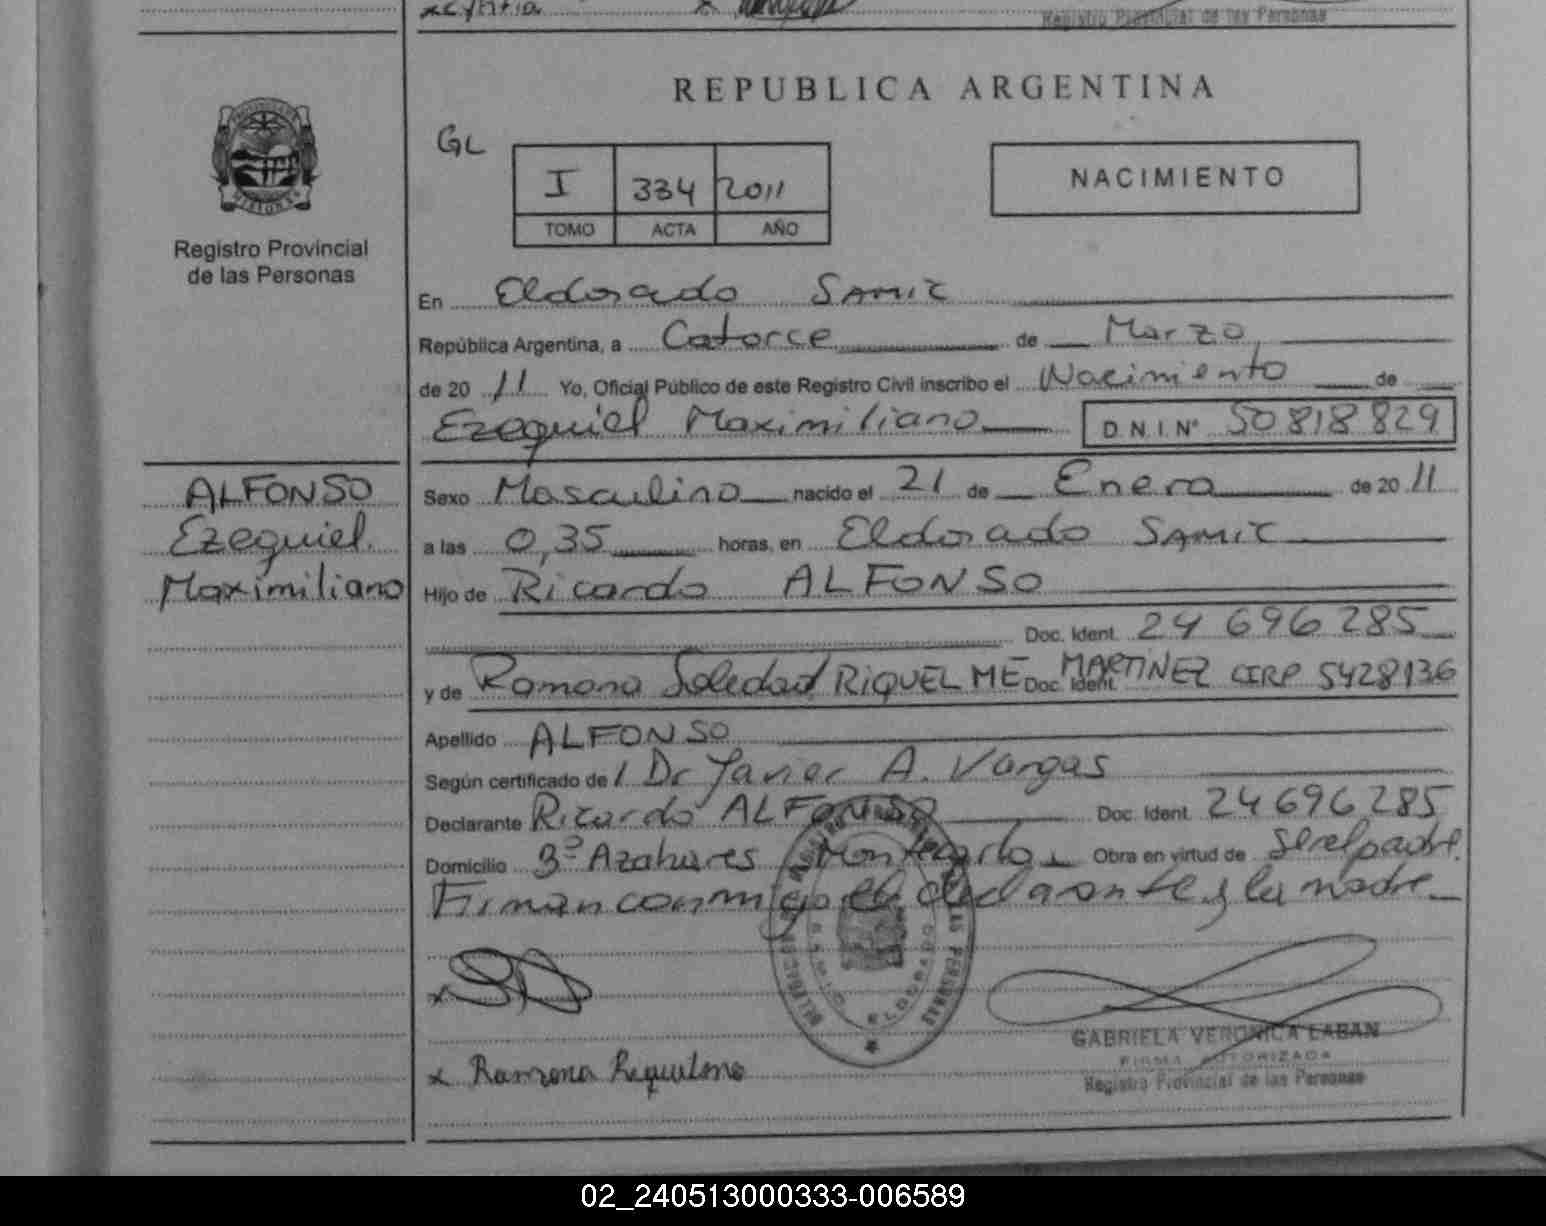 Registro Provincial de las Personas
REPUBLICA ARGENTINA
GL
I 334 2011
TOMO ACTA AÑO
NACIMIENTO
Registro Provincial
de las Personas
En Eldorado SAMIC
República Argentina, a Catorce de Marzo
de 2011 Yo, Oficial Público de este Registro Civil inscribo el Nacimiento de
Ezequiel Maximiliano D.N.I.N° 50818829
ALFONSO
Ezequiel
Maximiliano
Sexo Masculino nacido el 21 de Enero de 2011
a las 0,35 horas, en Eldorado SAMIC
Hijo de Ricardo ALFONSO
Doc. Ident. 24 696 285
y de Ramona Soledad RIQUELME MARTINEZ Doc. Ident. CIRP 5428136
Apellido ALFONSO
Según certificado de Dr Javier A. Vargas
Declarante Ricardo ALFONSO Doc. Ident. 24696285
Domicilio Bº Azahares Montecarlo Obra en virtud de ser el padre.
Firman conmigo el declarante y la madre
x
x Ramona Requelme
GABRIELA VERONICA LABAN
FIRMA AUTORIZADA
Registro Provincial de las Personas
02_240513000333-006589